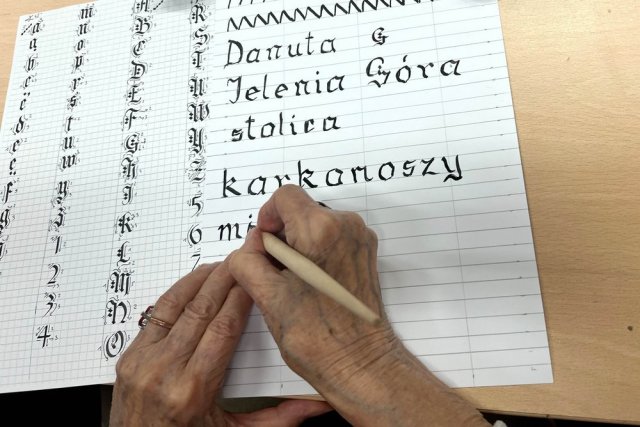 a
ą
b
c
ć
d
e
ę
f
g
m
n
o
p
r
s
t
u
w
y
z
1
2
3
4
A
B
C
D
E
F
G
H
I
K
L
M
N
O
R
S
T
U
W
Y
Z
5
6
7
Danuta G
Jelenia Góra
stolica
karkanoszy